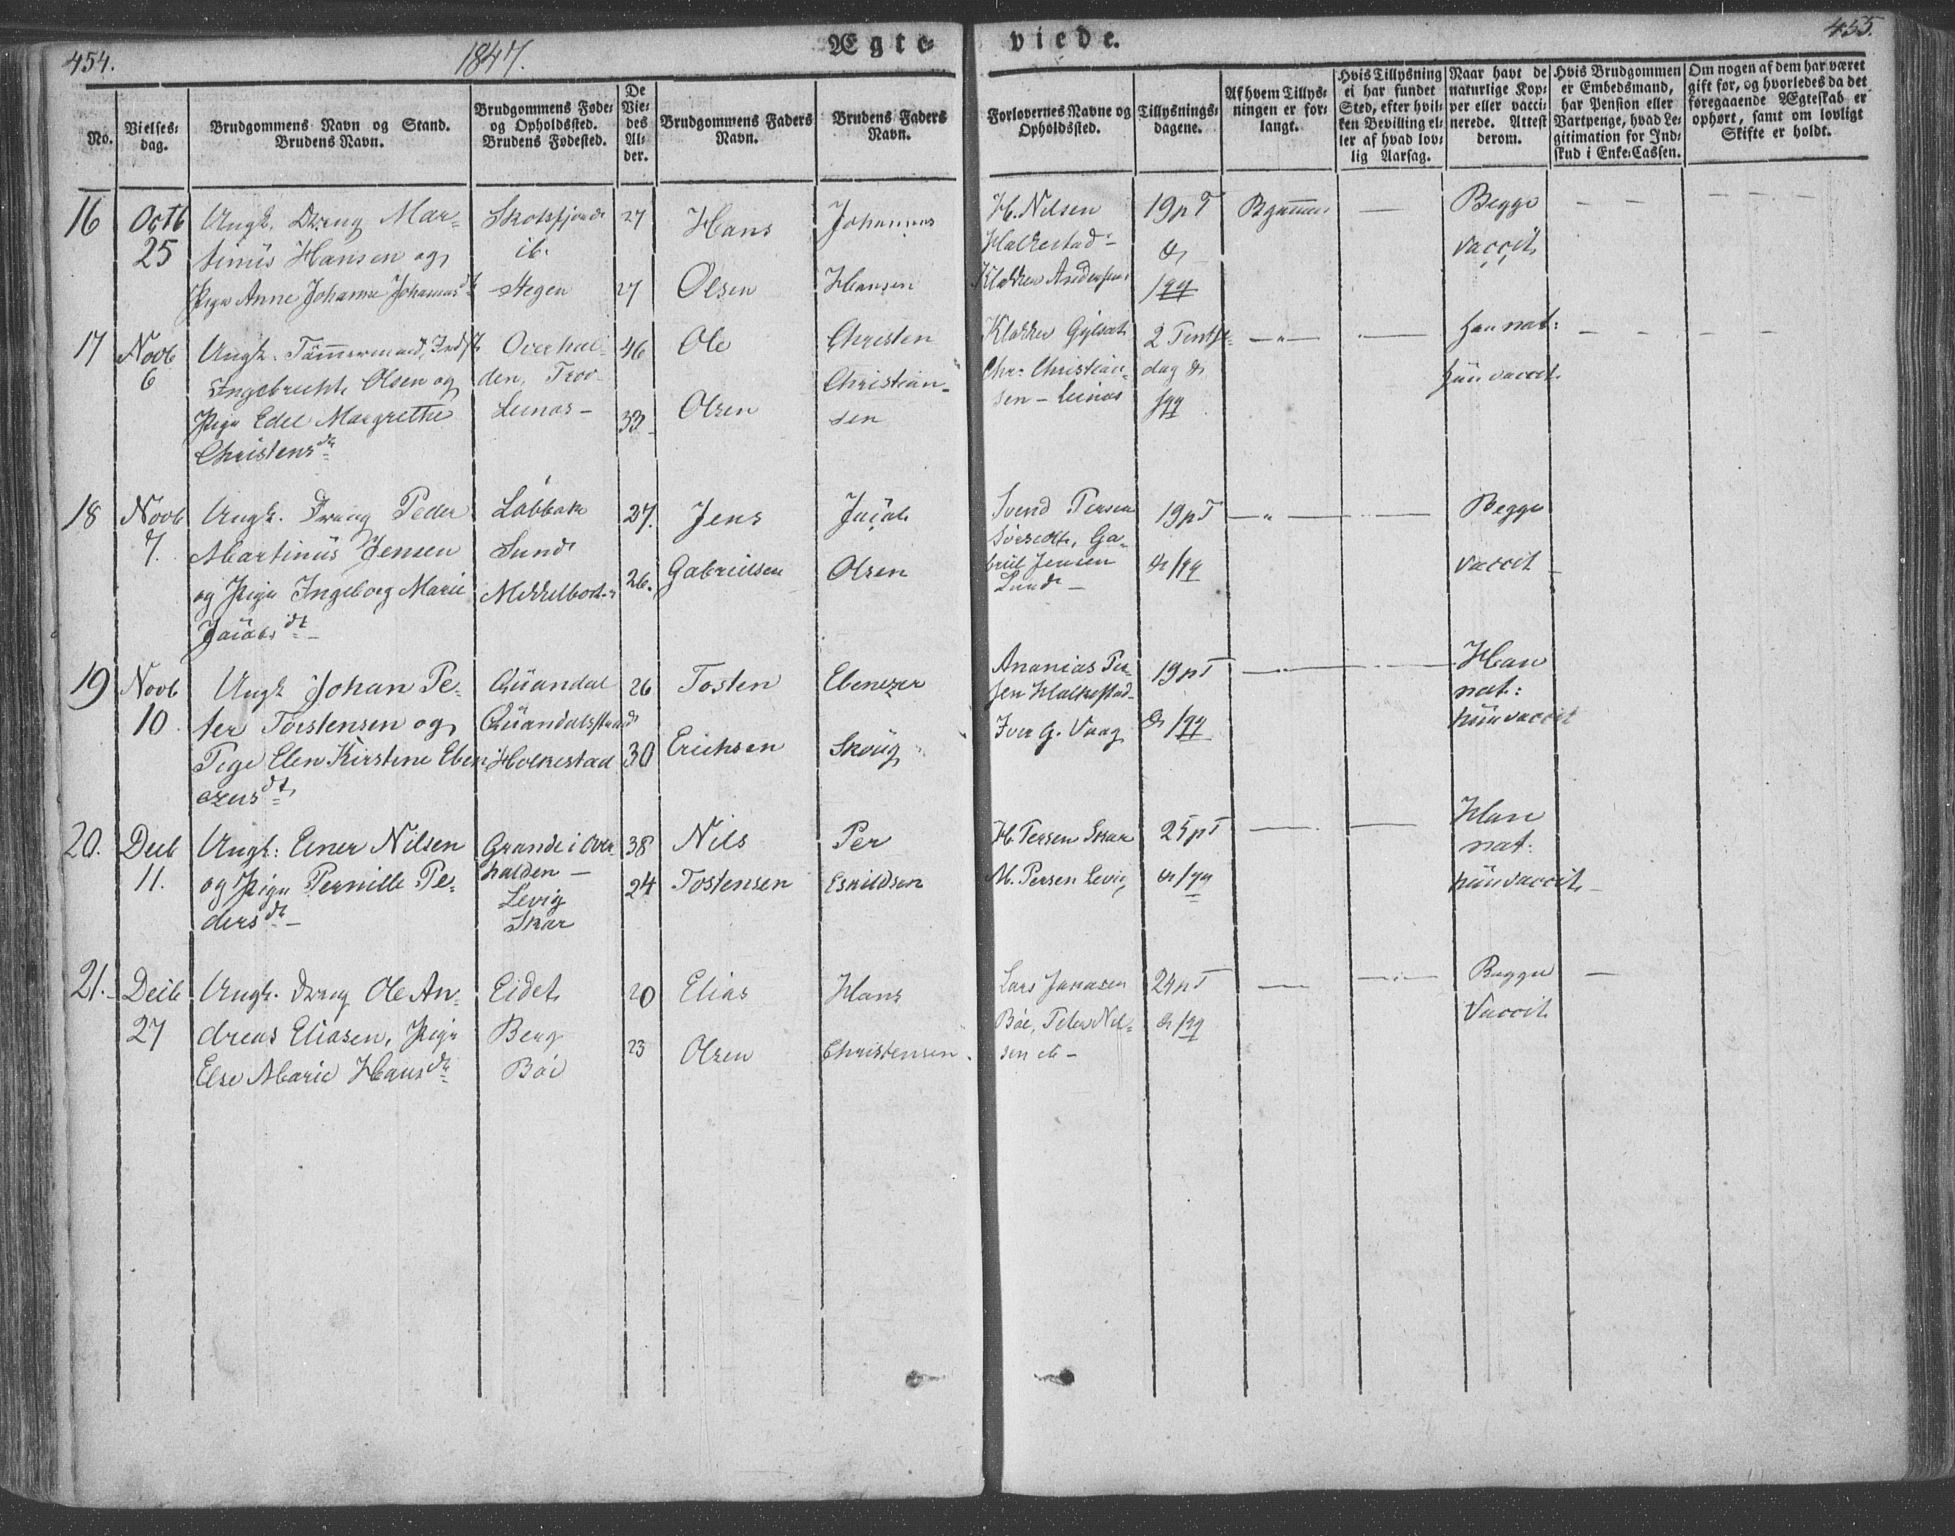 454.
1847.
Ægte-
viede.
455.
No.
Vielses-
dag.
Brudgommens Navn og Stand.
Brudens Navn.
Brudgommens Føde-
og Opholdssted.
Brudens Fødested.
De
Vie-
des
Al-
der.
Brudgommens Faders
Navn.
Brudens Faders
Navn.
Forlovernes Navne og
Opholdssted.
Tillysnings-
dagene.
Af hvem Tillys-
ningen er for-
langt.
Hvis Tillysning
ei har fundet
Sted, efter hvil-
ken Bevilling el-
ler af hvad lov-
lig Aarsag.
Naar havt de
naturlige Kop-
per eller vacci-
nerede. Attest
derom.
Hvis Brudgommen
er Embedsmand,
har Pension eller
Vartpenge, hvad Le-
gitimation for Ind-
skud i Enke-Cassen.
Om nogen af dem har været
gift før, og hvorledes da det
foregaaende Ægteskab er
ophørt, samt om lovligt
Skifte er holdt.
16
Octb
25
Ungk. Dreng Mar-
tinus Hansen og
Pige Anne Johanna Johannesdt
Skotsfjord
ib.
Stegen
27
27
Hans
Olsen
Johannes
Hansen
H. Nilsen
Halkestad
Klokker Andersen
19 p T
&
Brudgommen
Begge
vaccit
17
Novb
6
Ungk. Tømmermand, Inds
Ingebrecht Olsen og
Pige Edel Margrethe
Christensdr
Overhal-
den,
Leinæs
46
33
Ole
Olsen
Christen
Christian-
sen
Klokker
Chr. Christian-
sen - Leinæs
2
dag &
han nat:
hun vaccit
18
Novb
7.
Ungk. Dreng Peder
Martinus Jensen
og Pige Ingeborg Marie
Jacobsdt
Løbbak
Sund
Mekkelbost
27.
26.
Jens
Gabrielsen
Jacob
Olsen
Svend Persen
Ga-
briel Jensen
Sund
19 p T
Begge
vaccit
19
Novb
10
Ungk Johan Pe-
ter Torstensen og
Pige Elen Kirstine Eben
ezersdt
Quandal
Quandalsstrand
Holkestad
26
30
Tosten
Erichsen
Ebenezer
Skoug
Ananias Per-
sen Holkestad
Iver G. Vaag
19 p T
Han
nat:
hun vaccit
20.
Decb
11.
Ungk: Einer Nilsen
og Pige Pernille Pe-
dersdt
Grande i Over
halden
Levig
Skar
38
24
Nils
Tostensen
Per
Eskildsen
H. Persen Skar
M. Persen Levig
25 p T
Han
nat.
hun vaccit
21.
Decb
27
Ungk. Dreng Ole An-
dreas Eliasen, Pige
Else Marie Hansdr
Eidet
Berg
Bøe
20
23
Elias
Olsen
Hans
Christensen
Lars Jonasen
Bøe, Peter Nil-
sen ib
24 p T
Begge
Vaccit